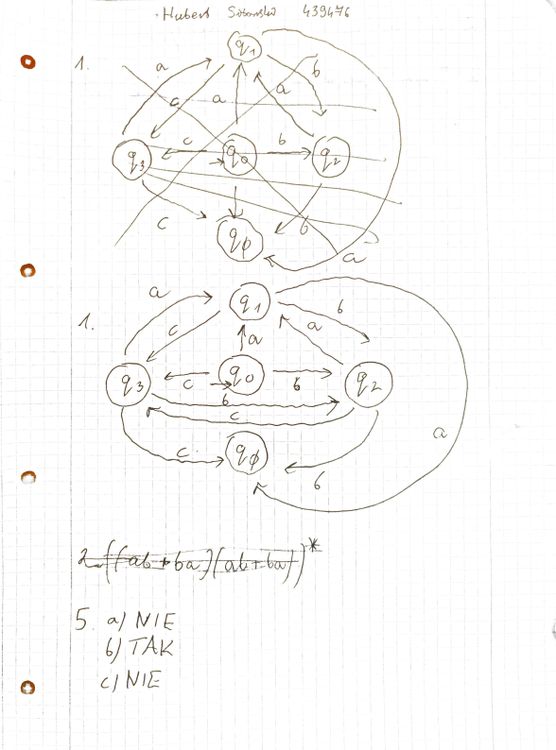 Hubert 439476
1.
q1
a
b
c
a
a
q3
c
q0
b
q2
c
b
qφ
a
1.
a
q1
b
c
a
a
q3
c
q0
b
q2
b
c
a
c
qφ
b
2. ((ab+ba)(ab+ba))*
5. a) NIE
b) TAK
c) NIE